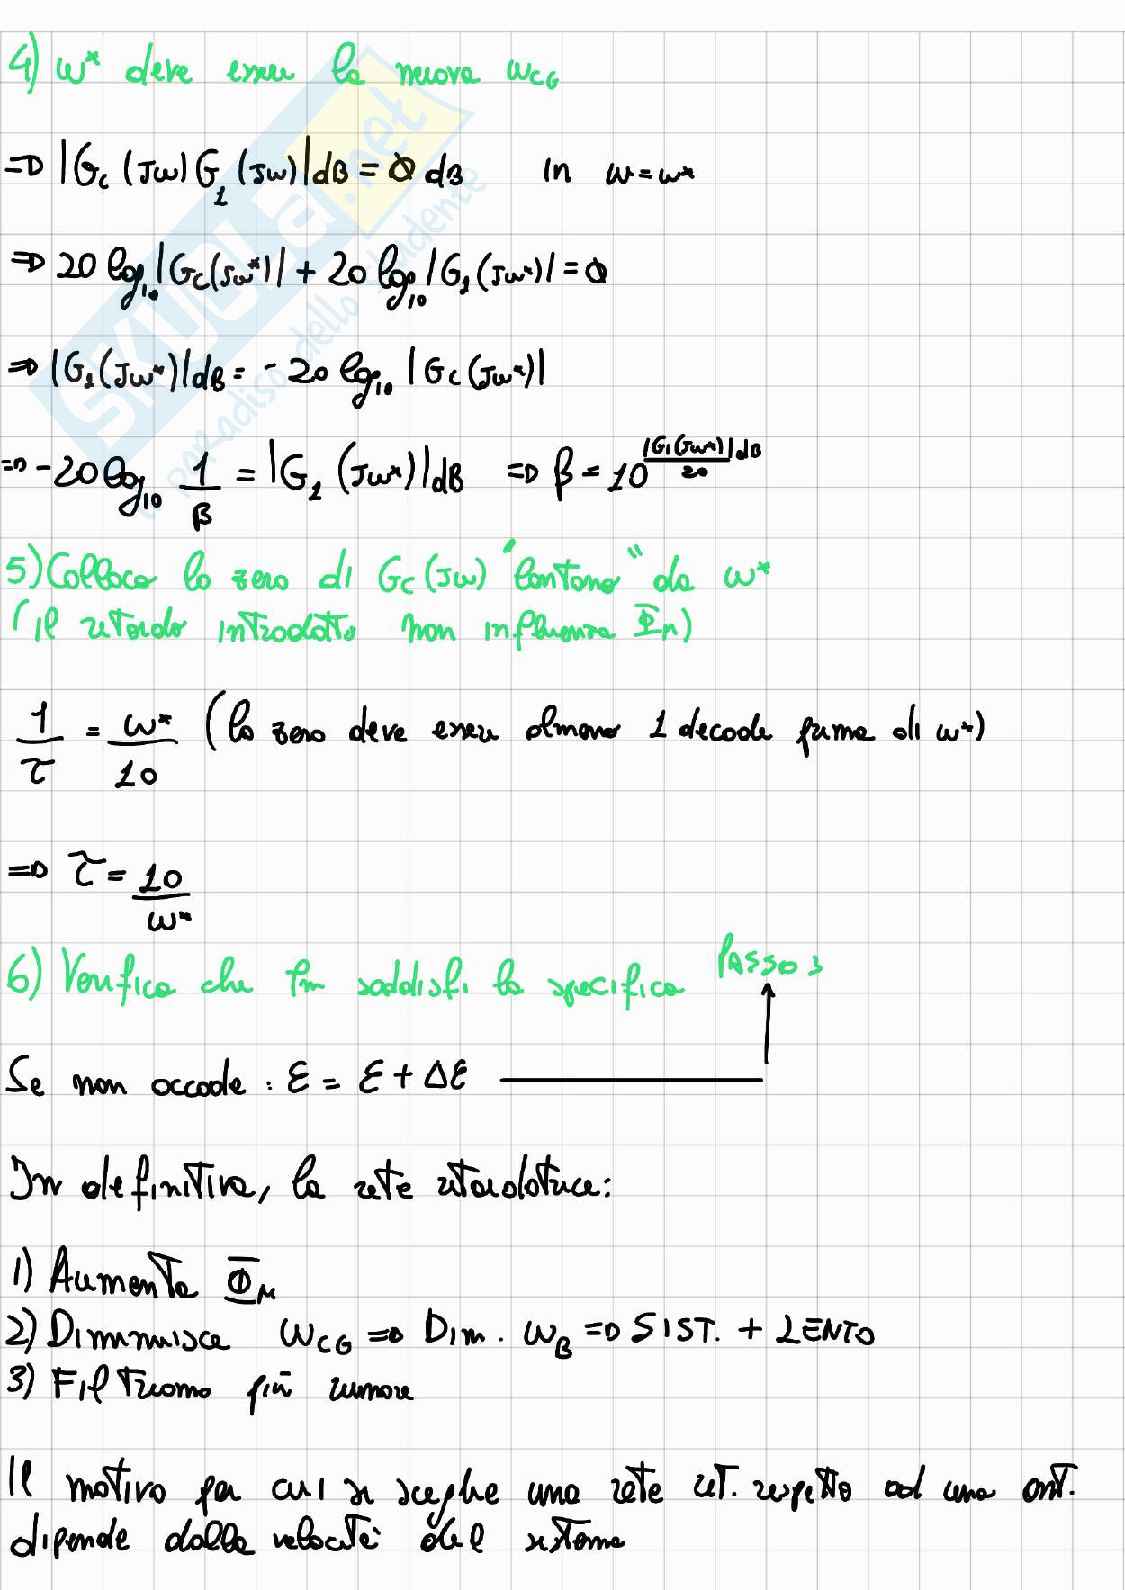 4) ω* deve essere la nuova ωCG
=> |Gc(Jω)G1(Jω)|dB = 0 dB in ω=ω*
=> 20 log10|Gc(Jω*)| + 20 log10|G1(Jω*)| = 0
=> |G1(Jω*)|dB = -20 log10 |Gc(Jω*)|
=> -20 log10 1/β = |G1(Jω*)|dB => β = 10^(|G1(Jω*)|dB/20)
5) Colloco lo zero di Gc(Jω) "lontano" da ω*
(il ritardo introdotto non influenza Φm)
1/τ = ω*/10 (lo zero deve essere almeno 1 decade prima di ω*)
=> τ = 10/ω*
6) Verifica che Φm soddisfi la specifica PASSO 3
Se non accade: ε = ε + Δε
In definitiva, la rete ritardatrice:
1) Aumenta ΦM
2) Diminuisce ωCG => Dim. ωB => SIST. + LENTO
3) Filtriamo più rumore
Il motivo per cui si sceglie una rete rit. rispetto ad una ant.
dipende dalla velocità del sistema
SKUOLA.net
paradiso dello studente